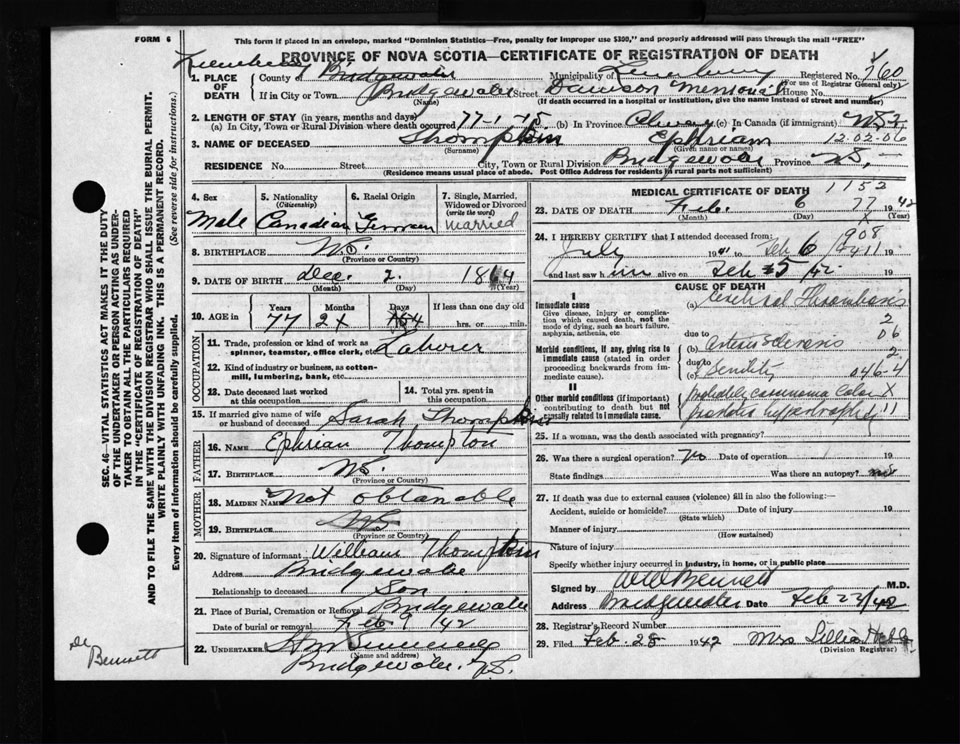 FORM 6
This form if placed in an envelope, marked "Dominion Statistics—Free, penalty for improper use $300," and properly addressed will pass through the mail "FREE"
PROVINCE OF NOVA SCOTIA—CERTIFICATE OF REGISTRATION OF DEATH
1. PLACE OF DEATH
County of Bridgewater Municipality of Lunenburg Registered No. 760
(For use of Registrar General only)
If in City or Town Bridgewater Street Dawson Memorial House No.
(Name) (If death occurred in a hospital or institution, give the name instead of street and number)
2. LENGTH OF STAY (in years, months and days)
(a) In City, Town or Rural Division where death occurred 77-1-15 (b) In Province Always (c) In Canada (if immigrant)
3. NAME OF DECEASED Thompson Ephriam 12-02-06
(Surname) (Given name or names)
RESIDENCE No. Street City, Town or Rural Division Bridgewater Province N.S.
(Residence means usual place of abode. Post Office Address for residents in rural parts not sufficient)
4. Sex Male
5. Nationality (Citizenship) Canadian
6. Racial Origin German
7. Single, Married, Widowed or Divorced (write the word) married
8. BIRTHPLACE N.S.
(Province or Country)
9. DATE OF BIRTH Dec. 2. 1864
(Month) (Day) (Year)
10. AGE in Years Months Days If less than one day old
77 2 hrs. or min.
OCCUPATION
11. Trade, profession or kind of work as spinner, teamster, office clerk, etc. Laborer
12. Kind of industry or business, as cotton-mill, lumbering, bank, etc.
13. Date deceased last worked at this occupation
14. Total yrs. spent in this occupation
15. If married give name of wife or husband of deceased Sarah Thompson
FATHER
16. NAME Ephrian Thompson
17. BIRTHPLACE N.S.
(Province or Country)
MOTHER
18. MAIDEN NAME Not obtanable
19. BIRTHPLACE N.S.
(Province or Country)
20. Signature of informant William Thompson
Address Bridgewater
Relationship to deceased Son
21. Place of Burial, Cremation or Removal Bridgewater
Date of burial or removal Feb 9 1942
22. UNDERTAKER
(Name and address)
Bridgewater, N.S.
MEDICAL CERTIFICATE OF DEATH 1152
23. DATE OF DEATH Feb. 6 1942
(Month) (Day) (Year)
24. I HEREBY CERTIFY that I attended deceased from:
July 1941 to Feb 6 19
and last saw him alive on Feb 5/42 19
CAUSE OF DEATH
I
Immediate cause
Give disease, injury or complication which caused death, not the mode of dying, such as heart failure, asphyxia, asthenia, etc
(a) Cerebral Thrombosis
due to
Morbid conditions, if any, giving rise to immediate cause (stated in order proceeding backwards from immediate cause).
(b) Arteriosclerosis
due to
(c) Senility
II
Other morbid conditions (if important) contributing to death but not causally related to immediate cause.
carcinoma Colon
hypertrophy
25. If a woman, was the death associated with pregnancy?
26. Was there a surgical operation? No Date of operation 19
State findings Was there an autopsy? no
27. If death was due to external causes (violence) fill in also the following:—
Accident, suicide or homicide? Date of injury 19
(State which)
Manner of injury
(How sustained)
Nature of injury
Specify whether injury occurred in industry, in home, or in public place
Signed by Bennett M.D.
Address Bridgewater Date Feb 23/42
28. Registrar's Record Number
29. Filed Feb. 28 1942 Mrs Lillia
(Division Registrar)
SEC. 46—VITAL STATISTICS ACT MAKES IT THE DUTY OF THE UNDERTAKER OR PERSON ACTING AS UNDERTAKER TO OBTAIN ALL THE PARTICULARS REQUIRED IN THE "CERTIFICATE OF REGISTRATION OF DEATH" AND TO FILE THE SAME WITH THE DIVISION REGISTRAR WHO SHALL ISSUE THE BURIAL PERMIT.
(See reverse side for instructions.)
WRITE PLAINLY WITH UNFADING INK. THIS IS A PERMANENT RECORD.
Every item of information should be carefully supplied.
Dr Bennett